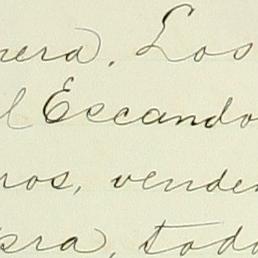 nera. Los
l Escando
ros, vende
pra, todo